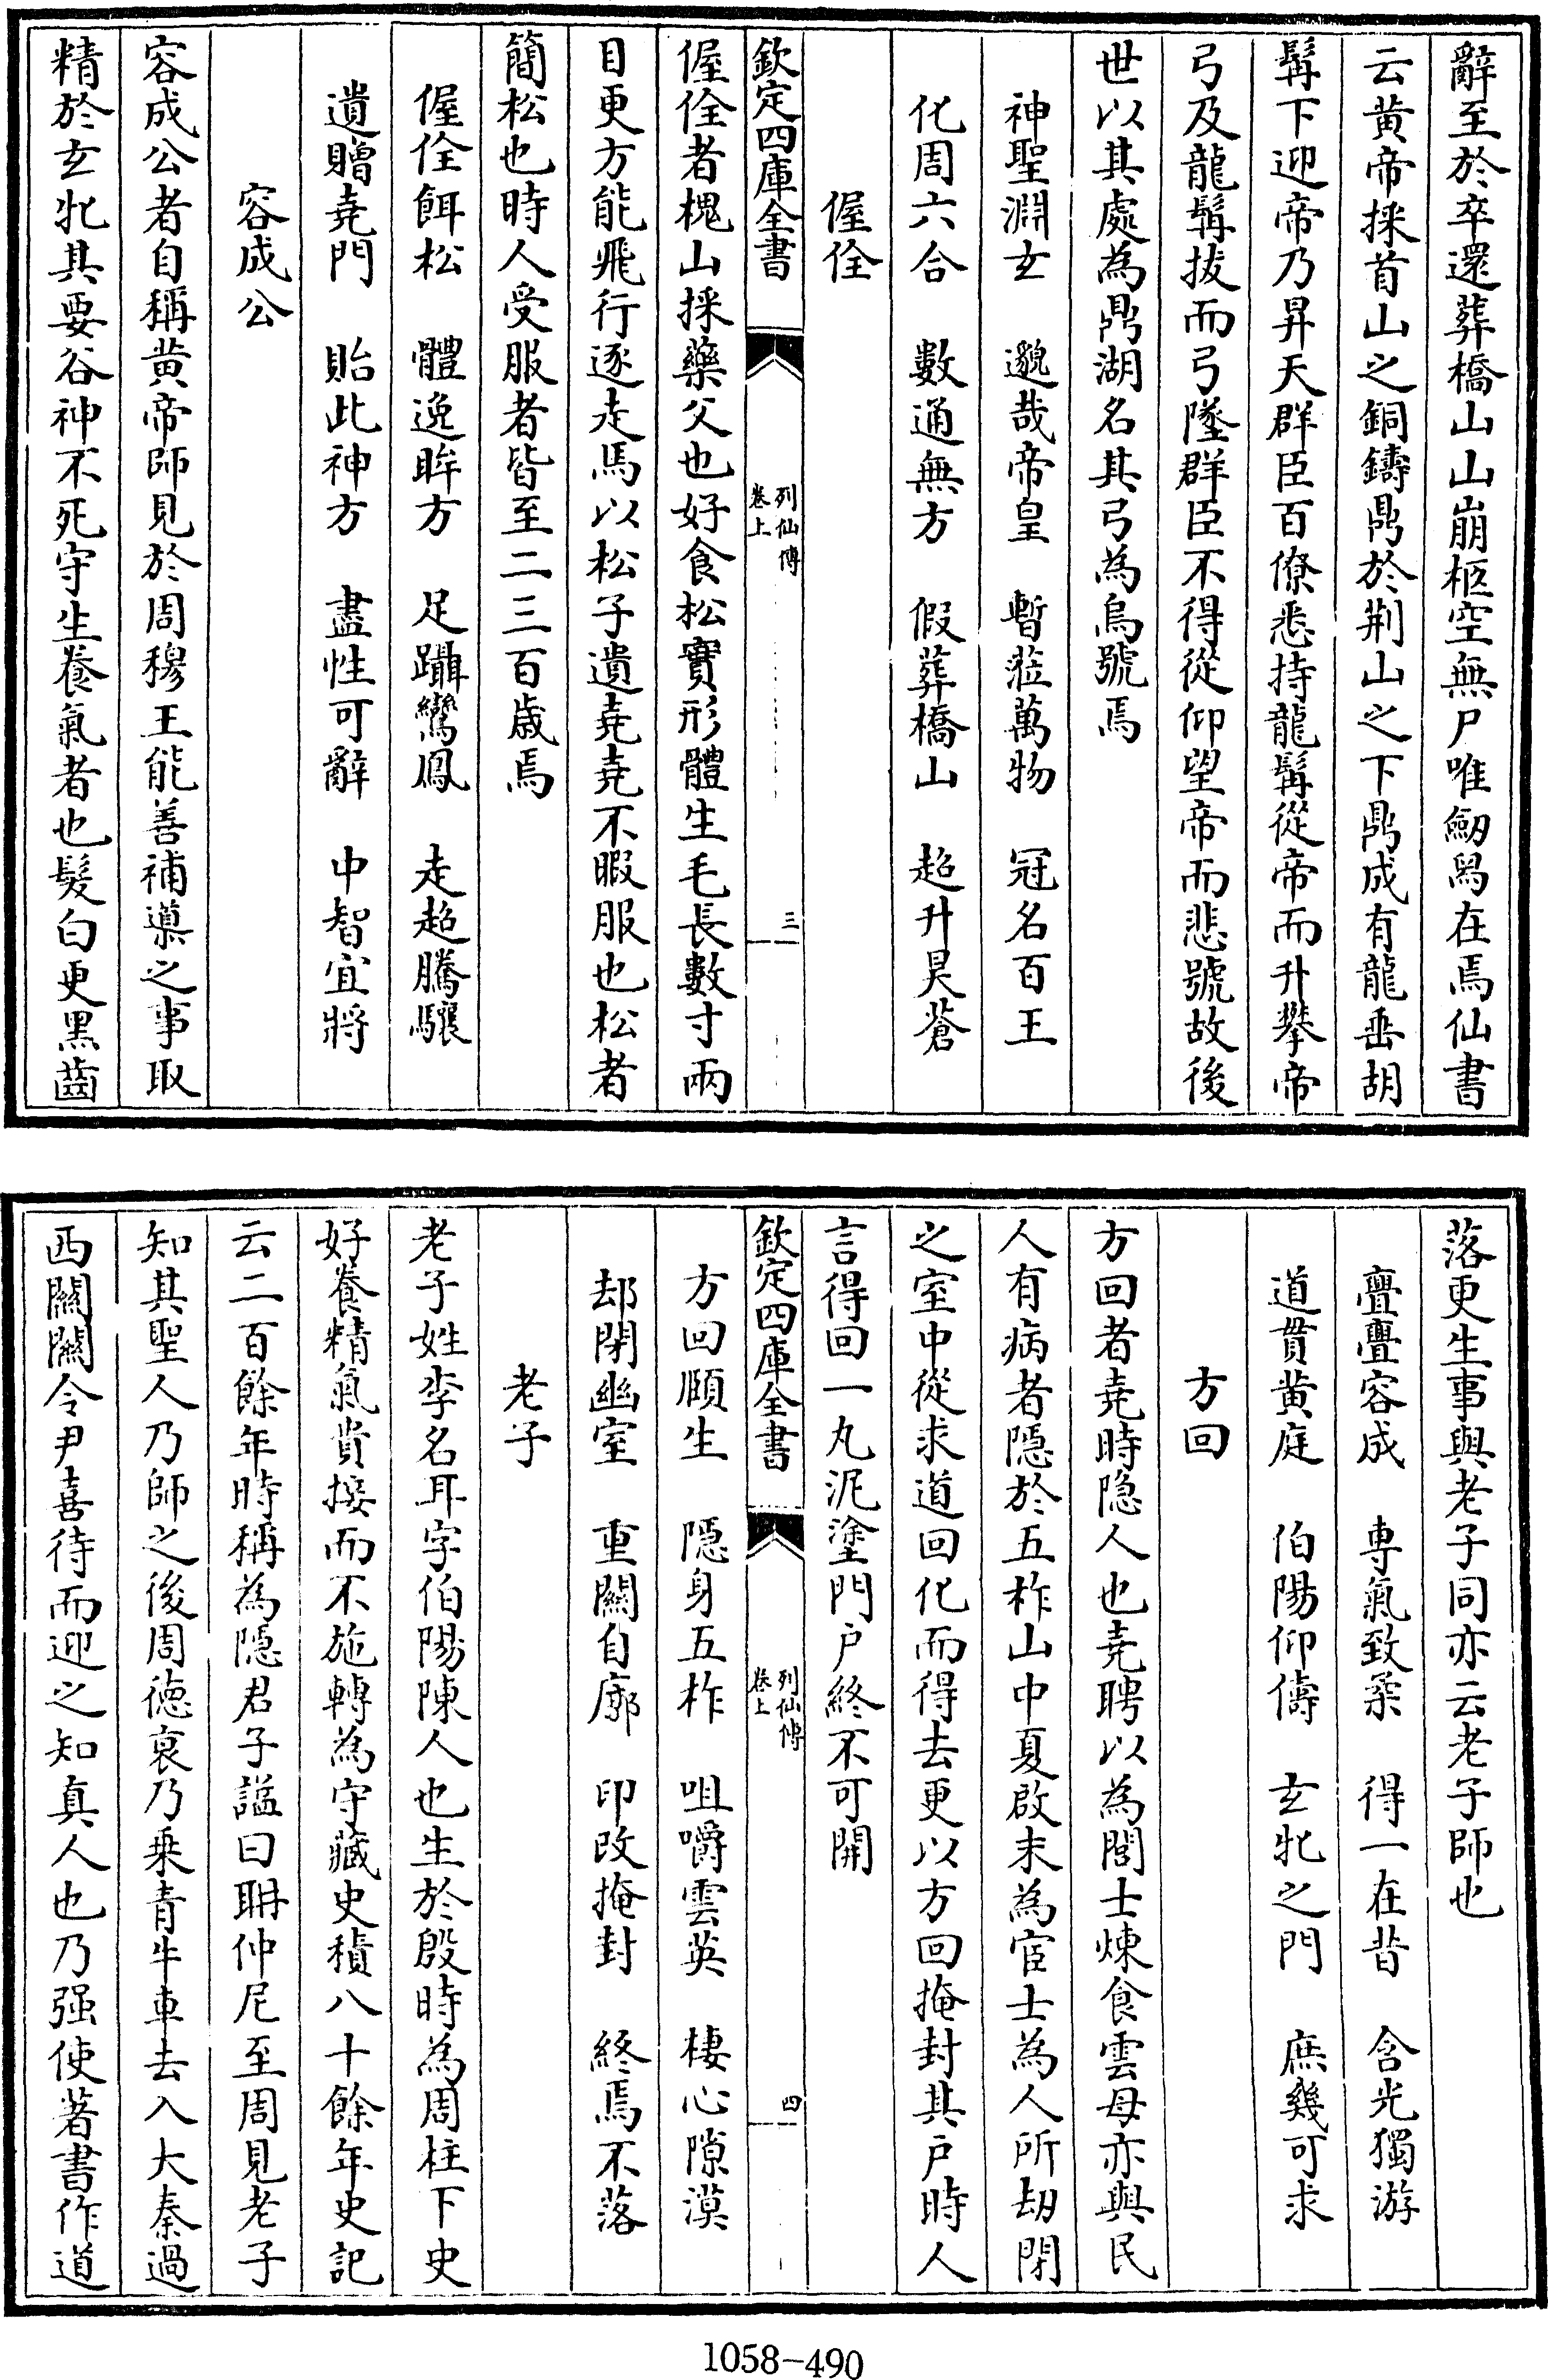 辭至於卒還葬橋山山崩柩空無尸唯劒舄在焉仙書
云黄帝採首山之銅鑄鼎於荆山之下鼎成有龍垂胡
髯下迎帝乃昇天群臣百僚悉持龍髯從帝而升攀帝
弓及龍髯拔而弓墜群臣不得從仰望帝而悲號故後
世以其處為鼎湖名其弓為烏號焉
神聖淵玄　邈哉帝皇　暫蒞萬物　冠名百王
化周六合　數通無方　假葬橋山　超升昊蒼
偓佺
欽定四庫全書
列仙傳
卷上
三
偓佺者槐山採藥父也好食松實形體生毛長數寸兩
目更方能飛行逐走馬以松子遺堯堯不暇服也松者
簡松也時人受服者皆至二三百歲焉
偓佺餌松　體逸眸方　足躡鸞鳳　走超騰驤
遺贈堯門　貽此神方　盡性可辭　中智宜將
容成公
容成公者自稱黄帝師見於周穆王能善補導之事取
精於玄牝其要谷神不死守生養氣者也髮白更黑齒
落更生事與老子同亦云老子師也
亹亹容成　専氣致柔　得一在昔　含光獨游
道貫黄庭　伯陽仰儔　玄牝之門　庶幾可求
方回
方回者堯時隐人也堯聘以為閭士煉食雲母亦與民
人有病者隱於五柞山中夏啟末為宦士為人所劫閉
之室中從求道回化而得去更以方回掩封其戸時人
言得回一丸泥塗門戸終不可開
欽定四庫全書
列仙傳
卷上
四
方回頤生　隱身五柞　咀嚼雲英　棲心隙漠
刼閉幽室　重關自廓　印改掩封　終焉不落
老子
老子姓李名耳字伯陽陳人也生於殷時為周柱下史
好養精氣貴接而不施轉為守藏史積八十餘年史記
云二百餘年時稱為隱君子謚曰耼仲尼至周見老子
知其聖人乃師之後周徳衰乃乗青牛車去入大秦過
西關關令尹喜待而迎之知真人也乃强使著書作道
1058-490